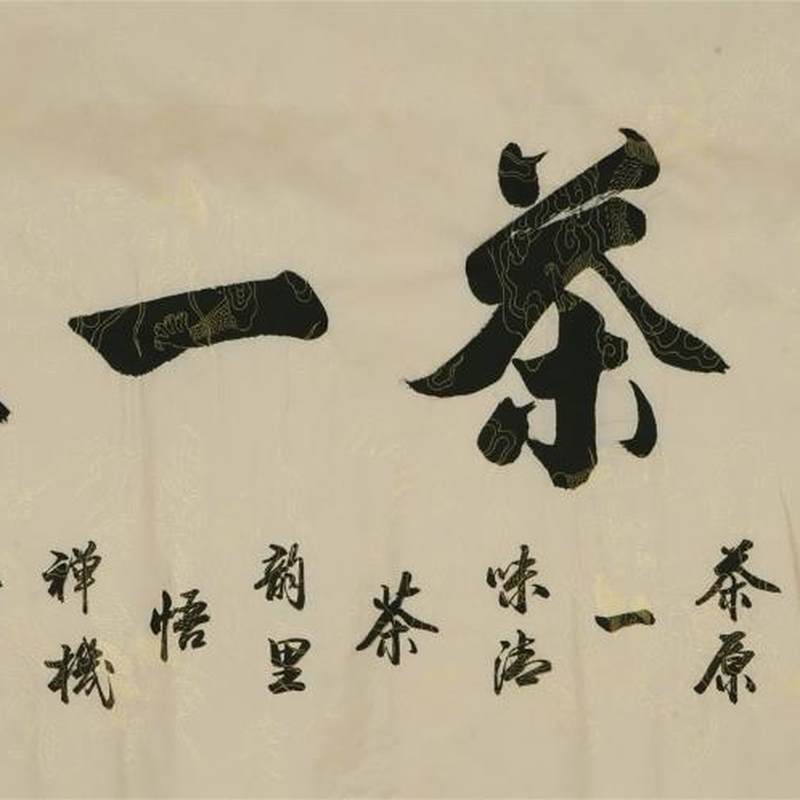 茶一
茶原
一
味清
茶
韵里
悟
禅機